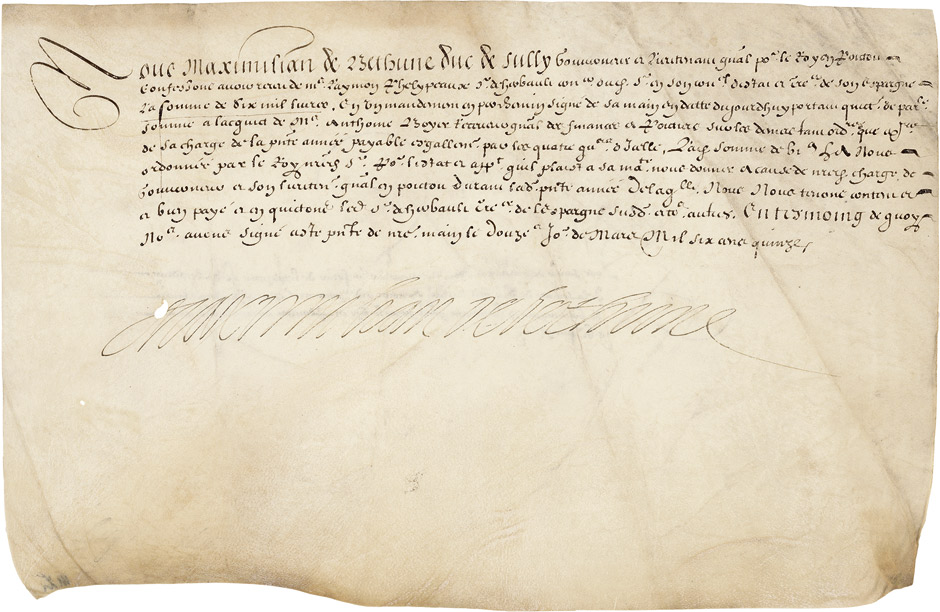 Nous Maximilian de Bethune duc de Sully Gouverneur et Lieutenant gnal po^r le Roy en Poitou
Confessons avoir receu de m^e Raymon Phelypeaux s^r de herbault con^er du Roy s^e en son con^el destat et tre^r de son espargne
La somme de Six mil livres, En un mandemen en parchemin signé de sa main en datte du jourdhuy portant quict^e de par^lle
somme a lacquict de M^e Anthoine Boyer gnal des finances en Poictou sur les deniers tant ord^res que ex^res
de sa charge de la pnte année payable esgallem^t par les quatre q^ers dicelle, Lad^e somme de vi^m l^t A Nous
ordonnée par le Roy nre s^r po^r lestat et app^t quil plaist a sa ma^té nous donner a cause de nred^e charge de
Gouverneur et son lieuten^t gnal en poictou durant lad^e pnte année De laq^lle Nous Nous tenons content et
et bien payé et en quictons led^t s^r de herbault tre^r de lespargne susd^t et to^s autres, En tesmoing de quoy
No^s avons signé ceste pnte de nre main le Douze^e Jo^r de Mars Mil six cens quinze,
Maximilian de bethune